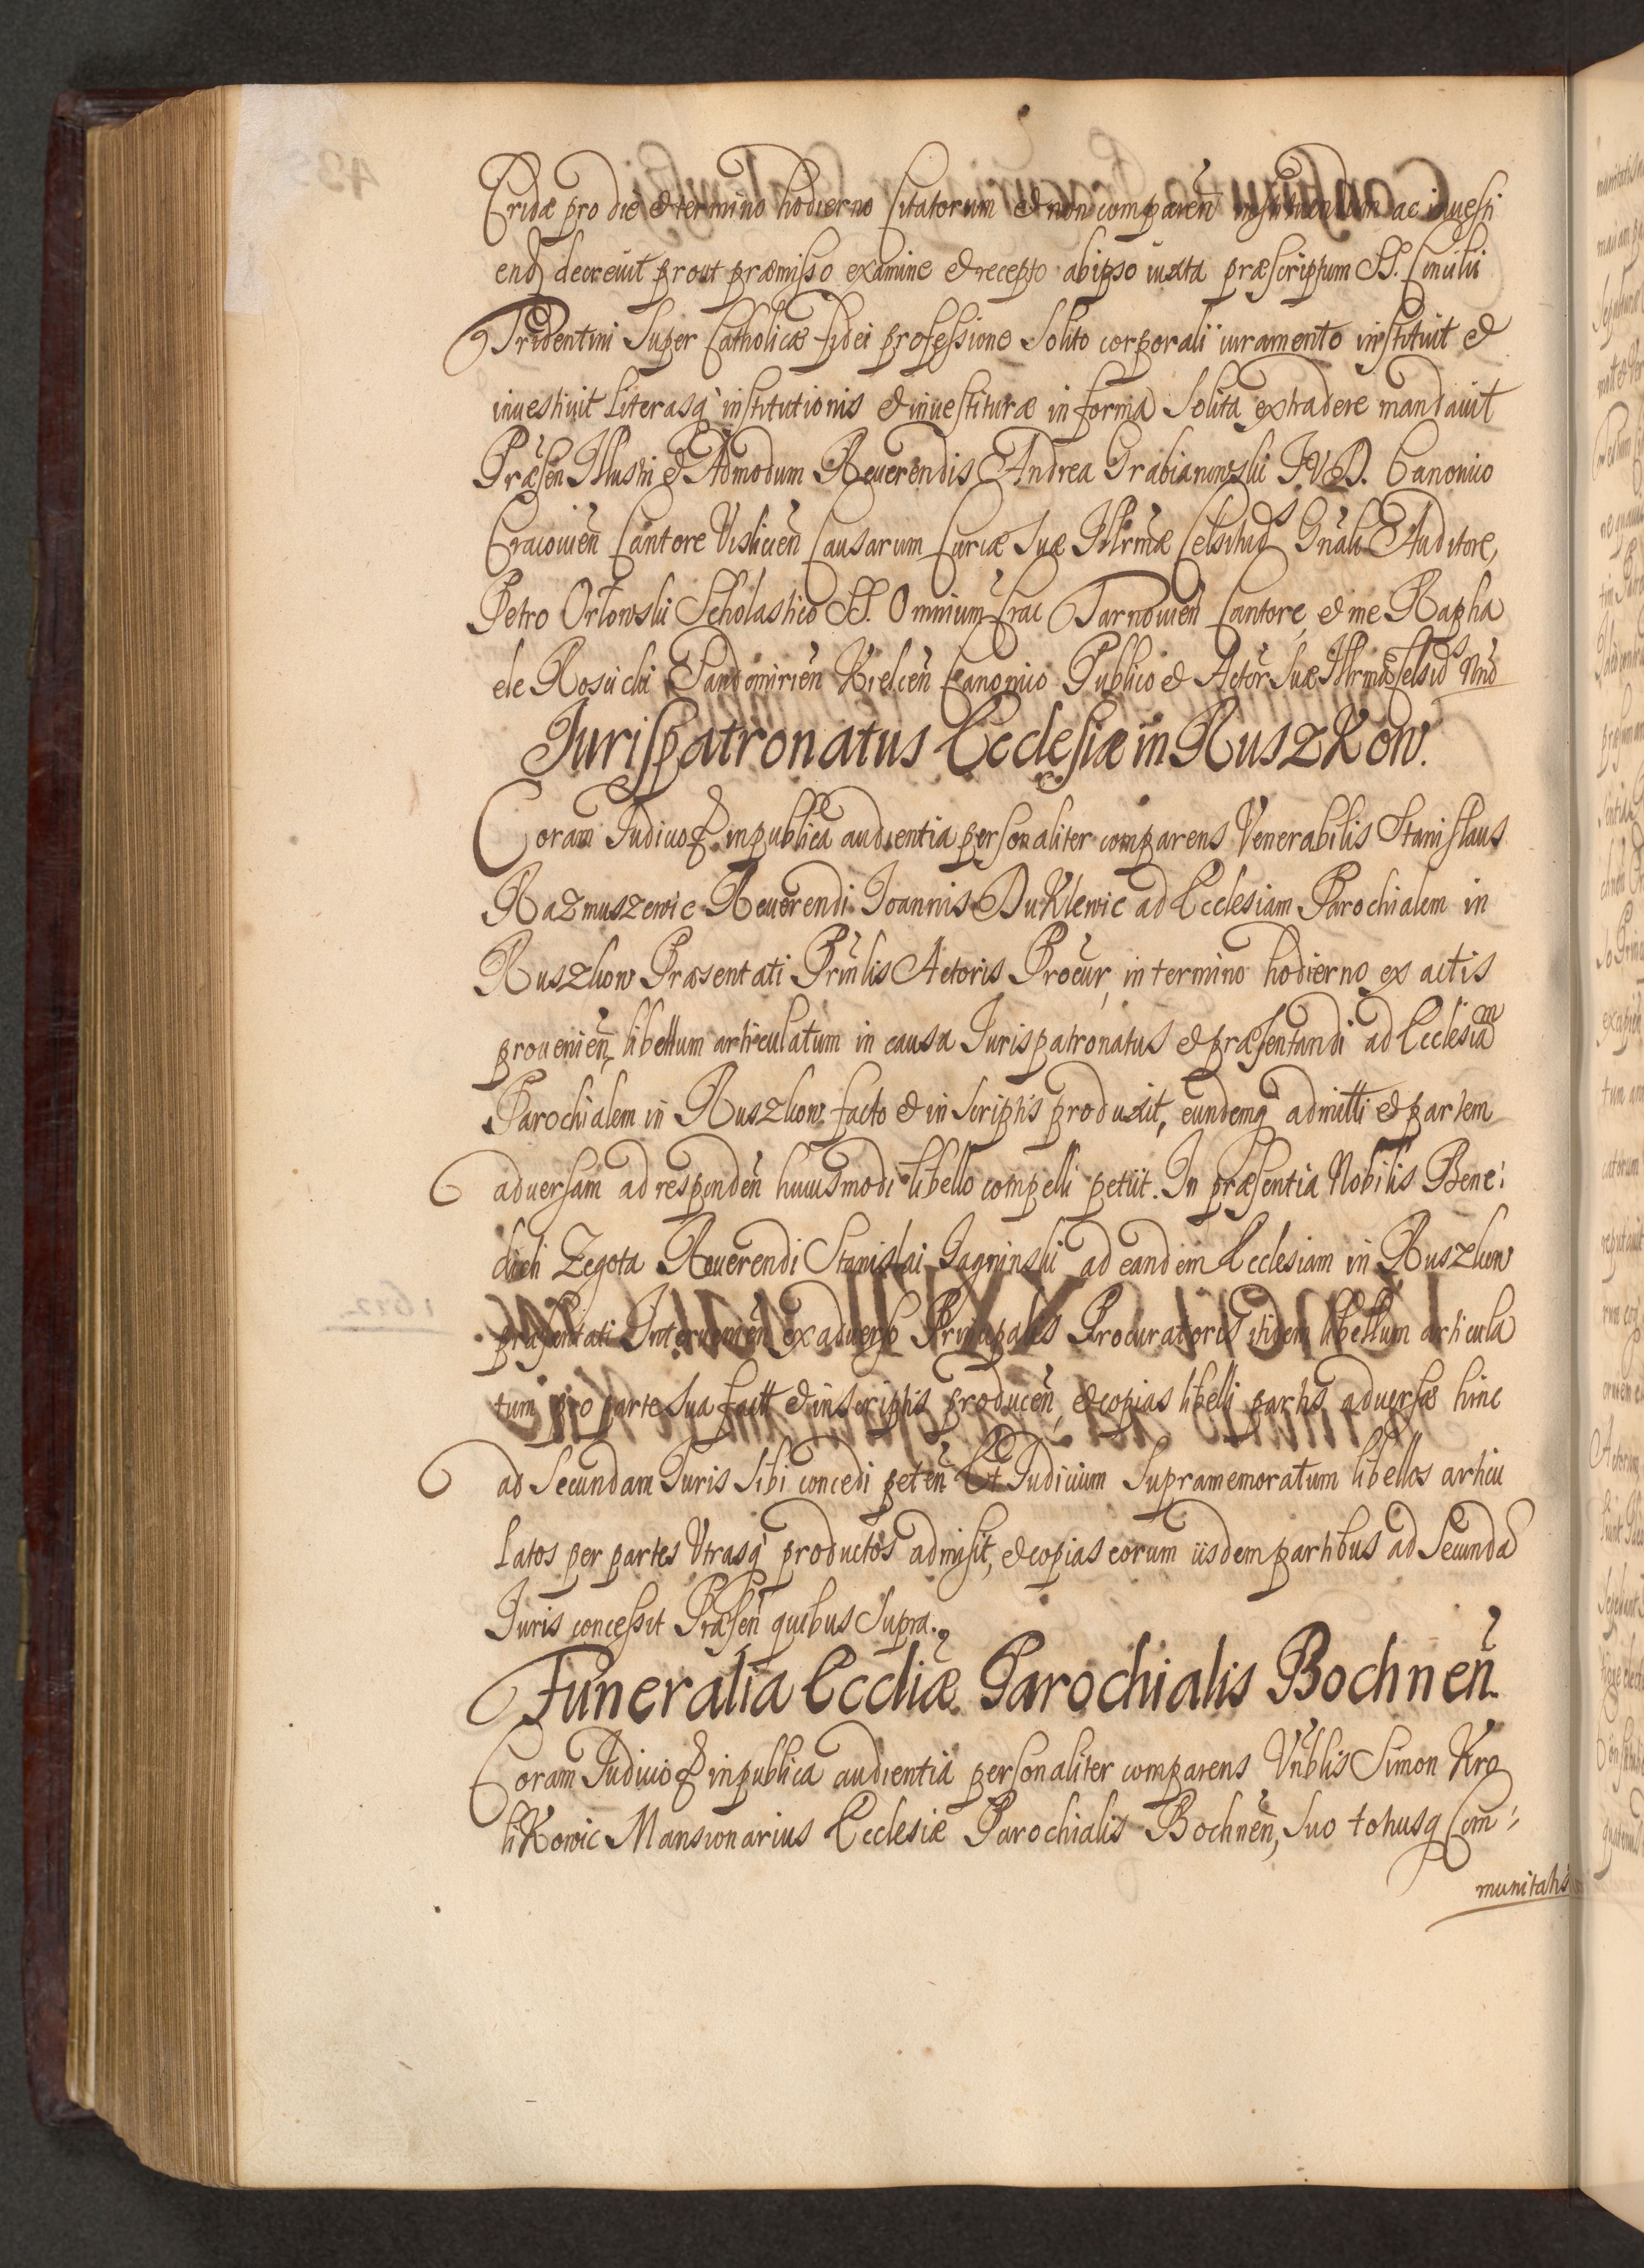 Cridæ pro die et termino hodierno Citatorum et non comparen̄ instituendum ac inuesti
end decreuit prout præmisso examine et recepto ab ipso iuxta præscriptum SS. Concilii
Tridentini Super Catholicæ fidei professione Solito corporali iuramento instituit et
inuestiuit Literasq institutionis et inuestituræ in forma Solita extradere mandauit
Præsen Illustri et Admodum Reuerendis Andrea Grabianowski I.V.D. Canonico
Cracouien̄ Cantore Vislicien̄ Causarum Curiæ Suæ Illrmæ Celsitud Gn̄ali Auditore,
Petro Orłowski Scholastico SS. Omnium Crac Tarnouien̄ Cantore, et me Rapha
ele Rosicki Sandomirien̄ Kielcen̄ Canonico Publico et Actor Suæ Illrmæ Celsid Nrio
Jurispatronatus Ecclesiæ in RuszKow.
Coram Judicio et in publica audientia personaliter comparens Venerabilis Stanislaus
Razmuszewic Reuerendi Joannis DuKlewic ad Ecclesiam Parochialem in
Ruszkow Præsentati Prin̄lis Actoris Procur, in termino hodierno ex actis
prouenien̄, libellum articulatum in causa Jurispatronatus et præsentandi ad Ecclesiam
Parochialem in Ruszkow facto et in scriptis produxit, eundemq admitti et partem
aduersam ad responden̄ huiusmodi libello compelli petiit. In præsentia Nobilis Bene:
dicti Zegota Reuerendi Stanislai Jagninski ad eandem Ecclesiam in Ruszkow
præsentati Interuenien̄ ex aduerso Principalis Procuratoris itidem libellum articula
tum pro parte sua factt et in scriptis producen̄, et copias libelli partis aduersæ hinc
ad Secundam Juris Sibi concedi peten̄ Et Judicium Supramemoratum libellos articu
latos per partes Vtrasq productos admisit, et copias eorum iisdem partibus ad Secundā
Juris concessit Præsen̄ quibus Supra.
Funeralia Eccliæ Parochialis Bochnen̄.
Coram Judicio et in publica audientia personaliter comparens Vn̄blis Simon Kro
liKowic Mansionarius Ecclesiæ Parochialis Bochnen̄, Suo totiusq Com:
munitatis